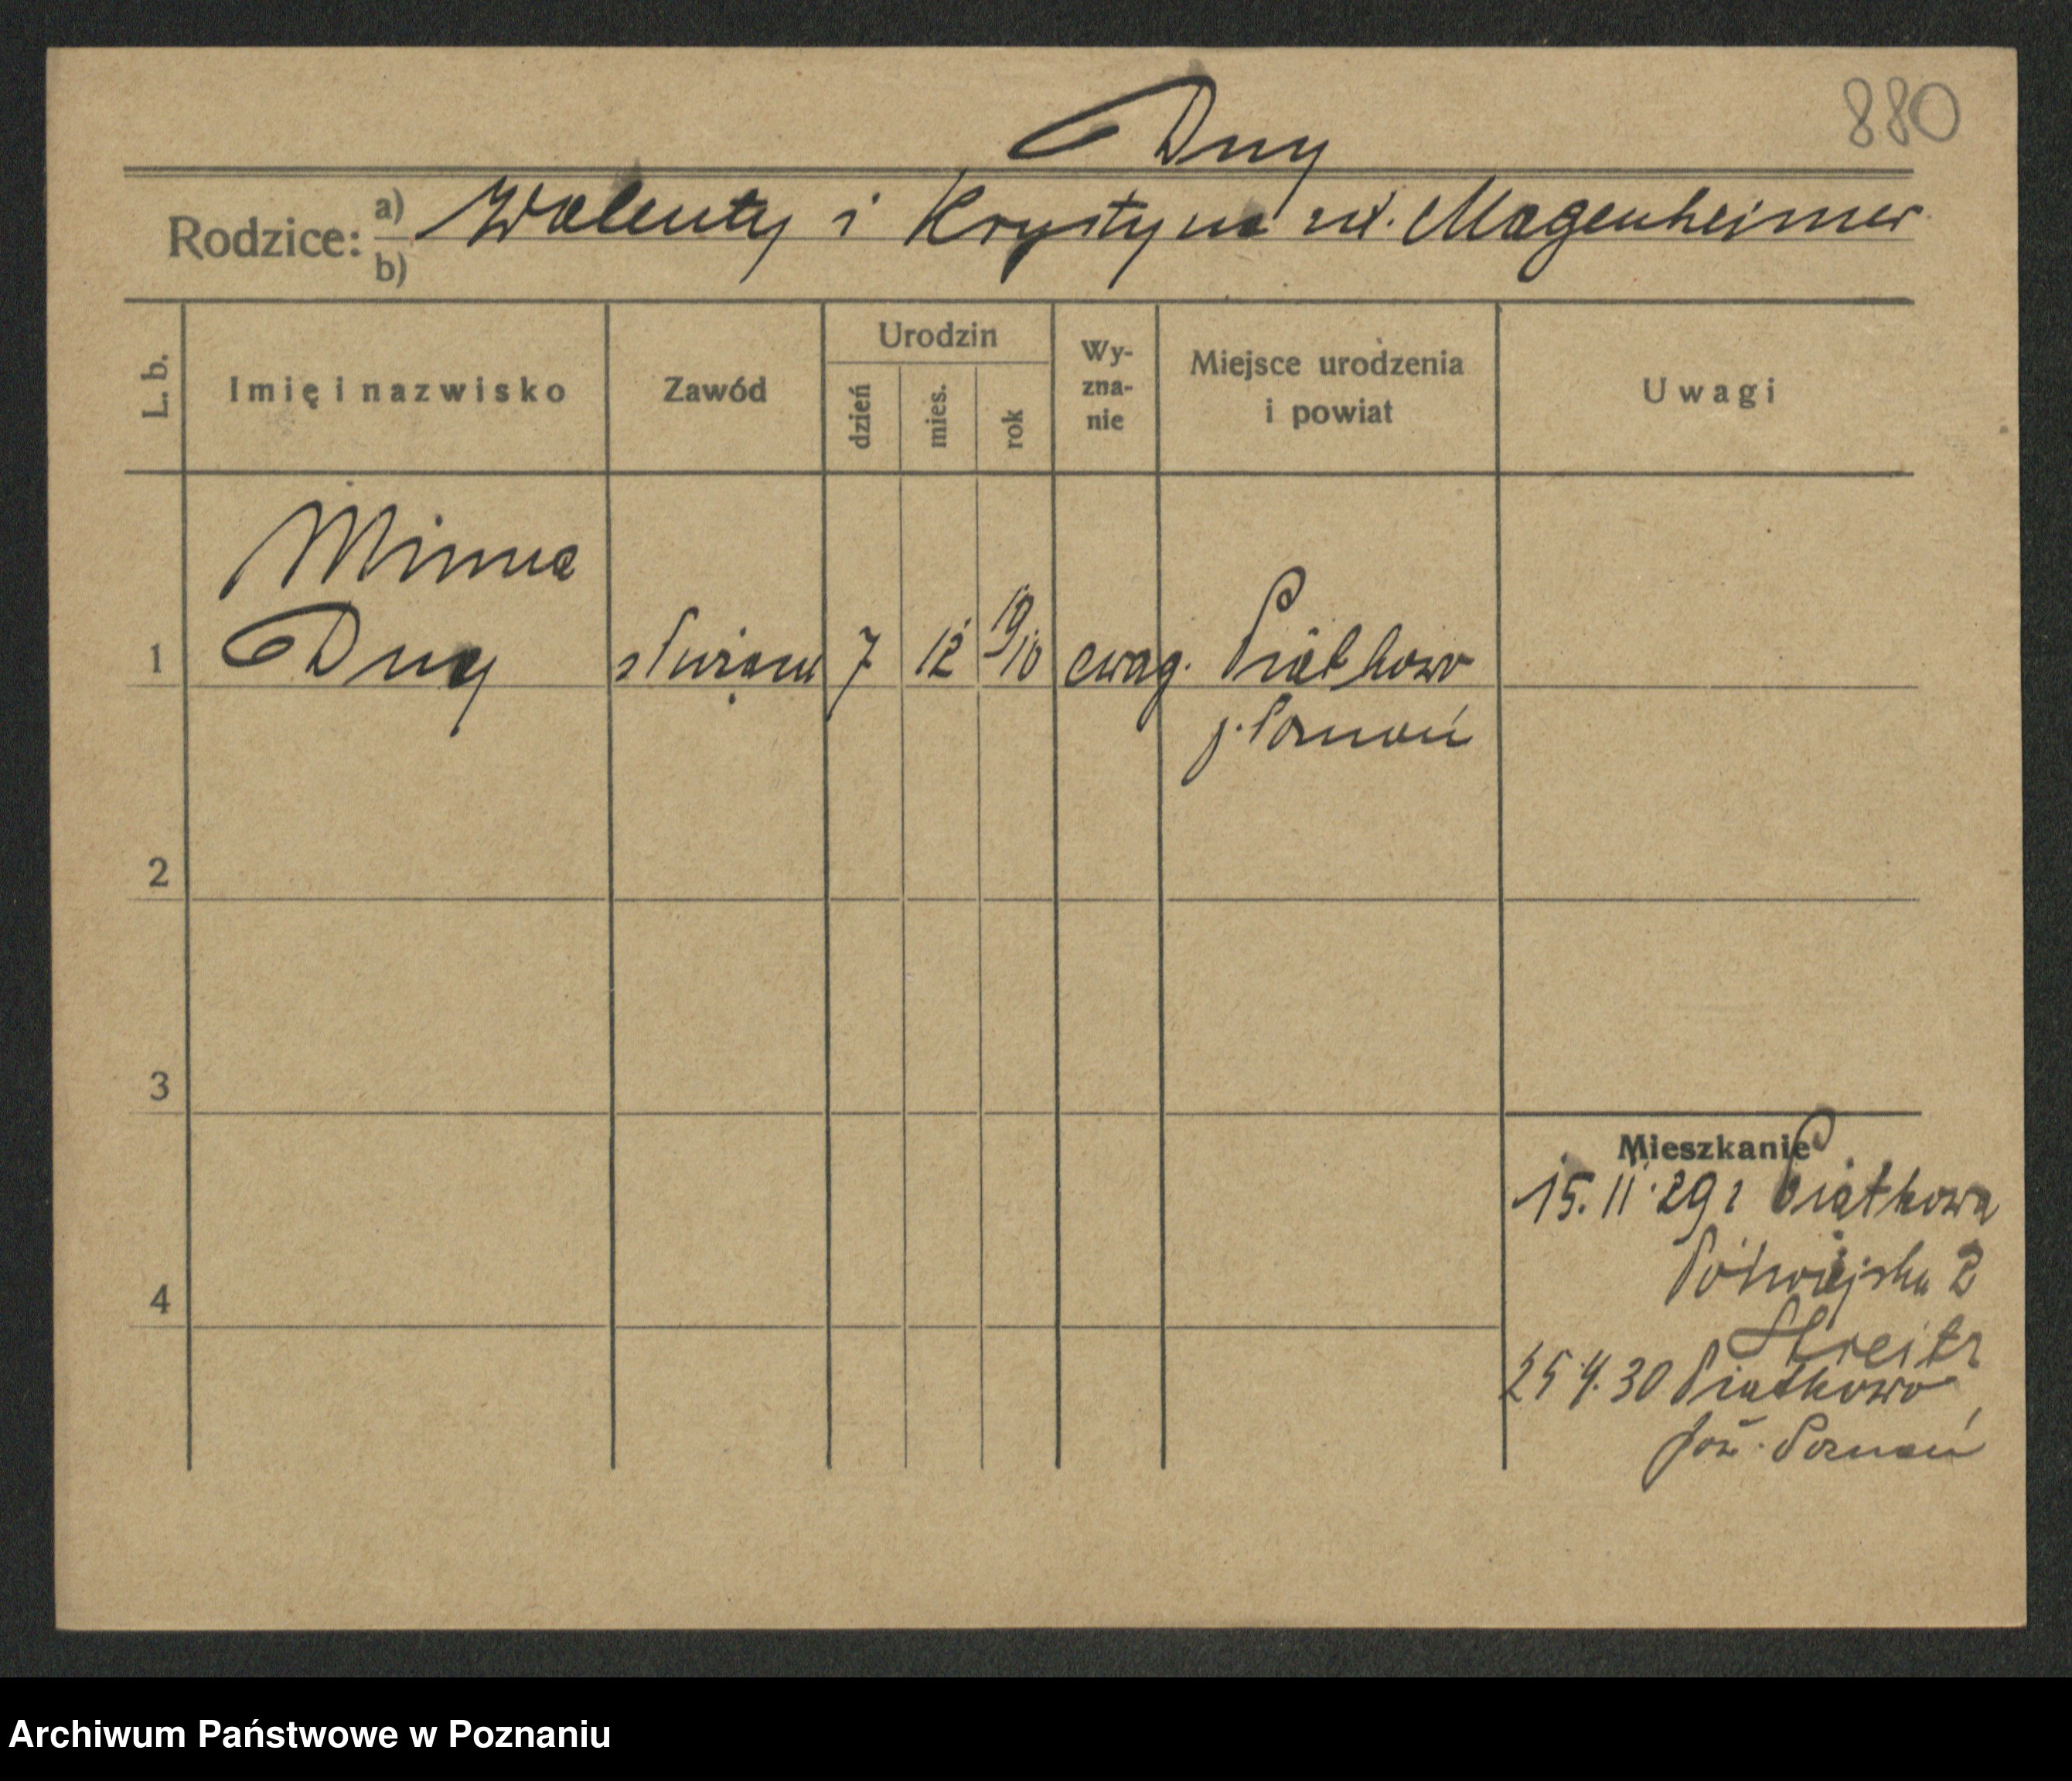 880
Duy
Rodzice: a) Walenty i Krystyna zd. Magenheimer
b)
L. b. Imię i nazwisko Zawód Urodzin dzień mies. rok Wyznanie Miejsce urodzenia i powiat Uwagi
Minna
1 Duy służąca 7 12 19/10 ewag. Piątkowo
p. Poznań
2
3
4
Mieszkanie
15. 11. 29 z Piątkowa
Półwiejska 2
Streitz
25 4. 30 Piątkowo
pow. Poznań
Archiwum Państwowe w Poznaniu